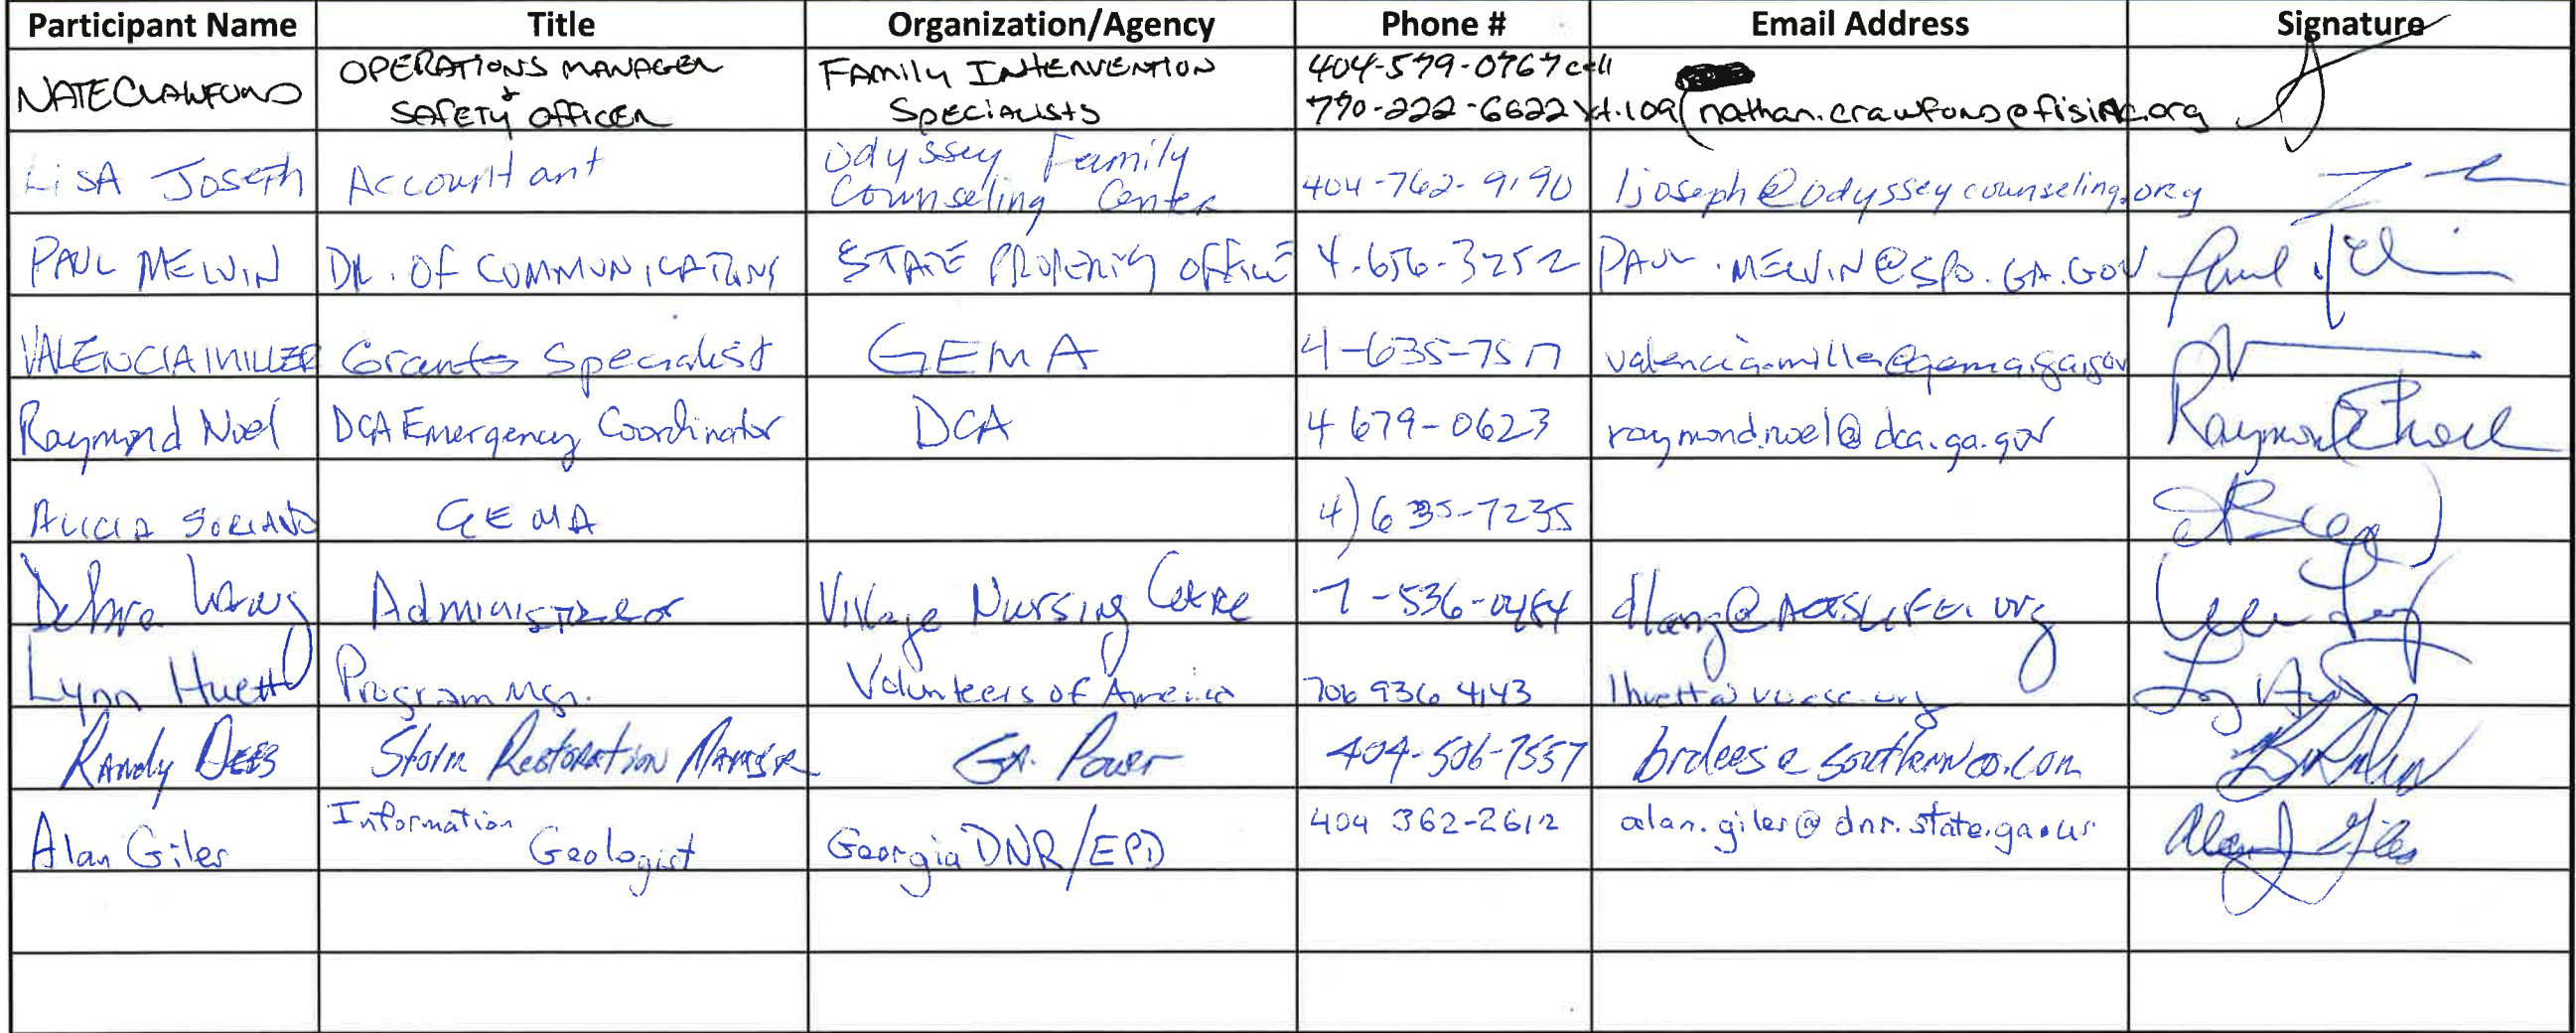 Participant Name Title Organization/Agency Phone # Email Address Signature
NATE CRAWFORD OPERATIONS MANAGER + SAFETY OFFICER FAMILY INTERVENTION SPECIALISTS 404-579-0767 cell 770-222-6622 xt.109 nathan.crawford@fisinc.org
LISA JOSEPH Accountant Odyssey Family Counseling Center 404-762-9190 ljoseph@odysseycounseling.org
PAUL MELVIN DIR. OF COMMUNICATIONS STATE PROPERTY OFFICE 4.656-3252 PAUL.MELVIN@SPO.GA.GOV Paul
VALENCIA MILLER Grants Specialist GEMA 4-635-7517 valencia.miller@gema.ga.gov
Raymond Noel DCA Emergency Coordinator DCA 4 679-0623 raymond.noel@dca.ga.gov Raymond E Noel
ALICIA SORIANO GEMA 4) 635-7235
Debra Lang Administrator Village Nursing Centre 7-536- dlang@ACTSLIFE.org
Lynn Huett Program Mgr. Volunteers of America 706 936 4143
Randy Dees Storm Restoration Manager GA. Power 404-506-7557 brdees@southernco.com
Alan Giles Information Geologist Georgia DNR/EPD 404 362-2612 alan.giles@dnr.state.ga.us Alan J Giles